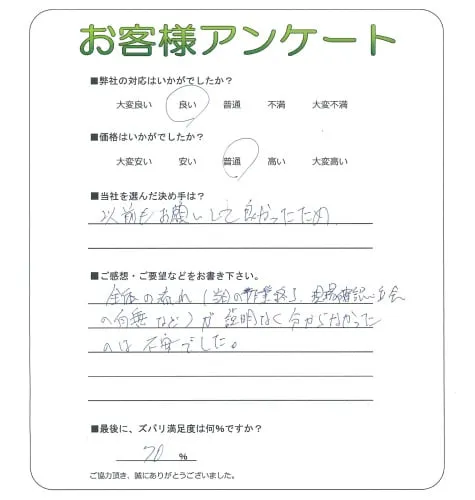 お客様アンケート
■弊社の対応はいかがでしたか?
大変良い 良い 普通 不満 大変不満
■価格はいかがでしたか?
大変安い 安い 普通 高い 大変高い
■当社を選んだ決め手は?
以前もお願いして良かったため
■ご感想・ご要望などをお書き下さい。
全体の流れ(当日の作業終了、現場確認立会
の有無など)が説明なく分からなかった
のは不安でした。
■最後に、ズバリ満足度は何%ですか?
70 %
ご協力頂き、誠にありがとうございました。